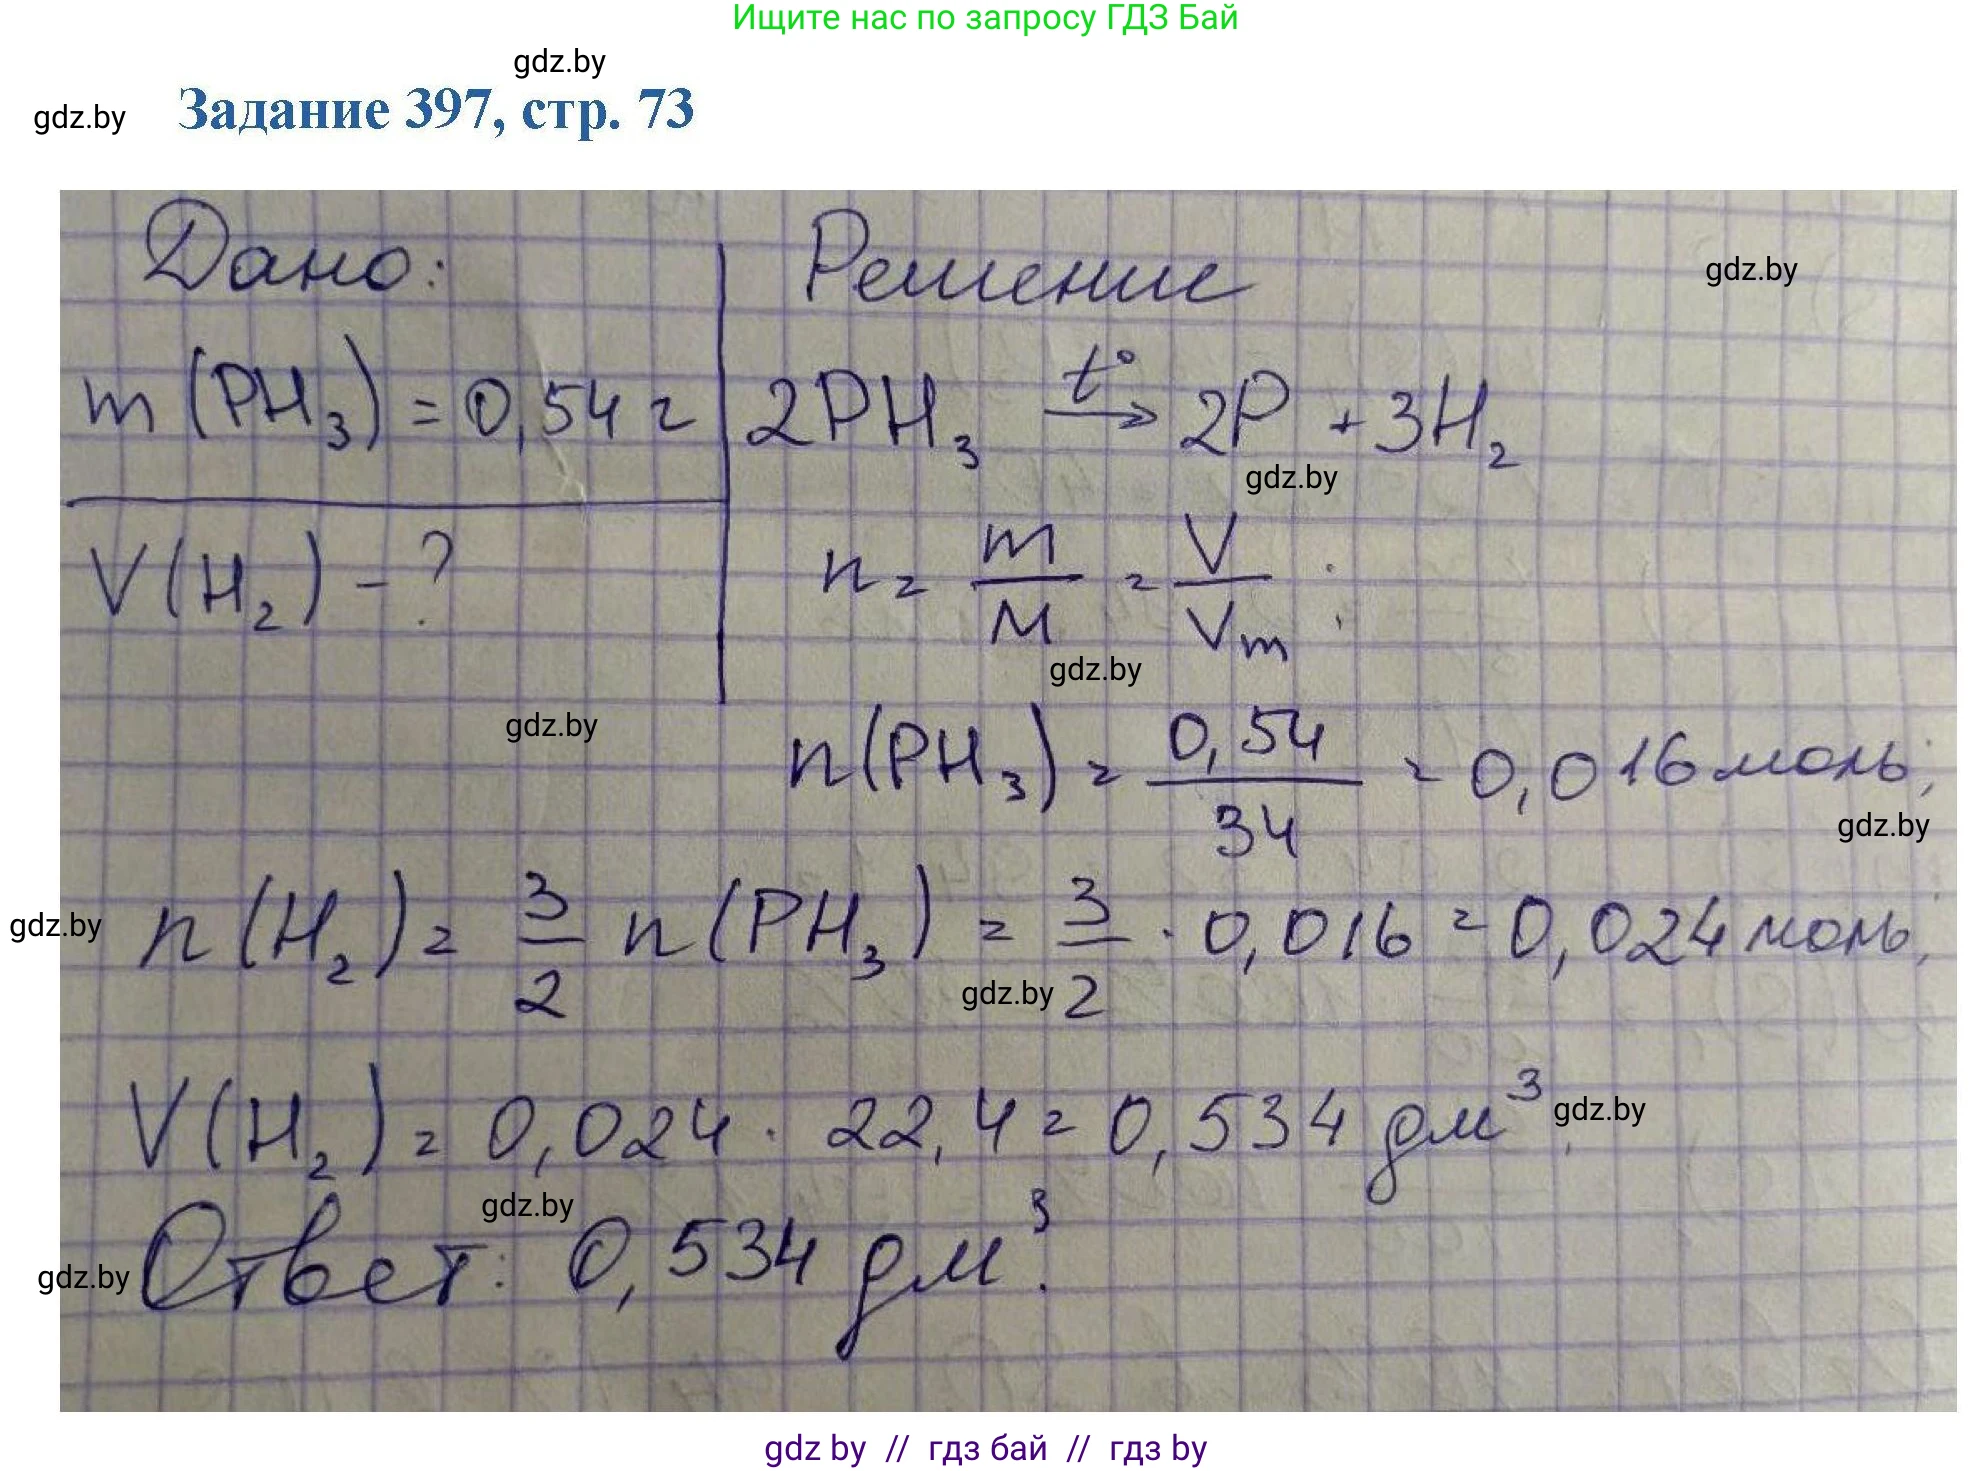 Ищите нас по запросу ГДЗ Бай
gdz.by
gdz.by Задание 397, стр. 73
Дано: Решение gdz.by
m (PH₃) = 0,54 г 2PH₃ →(t°) 2P + 3H₂
gdz.by
V (H₂) – ? n = m/M = V/Vm ;
gdz.by
gdz.by
n(PH₃) = 0,54/34 = 0,016 моль;
gdz.by
gdz.by n (H₂) = 3/2 n (PH₃) = 3/2 · 0,016 = 0,024 моль;
gdz.by
V (H₂) = 0,024 · 22,4 = 0,534 дм³. gdz.by
gdz.by
Ответ: 0,534 дм³.
gdz.by
gdz by // гдз бай // гдз by